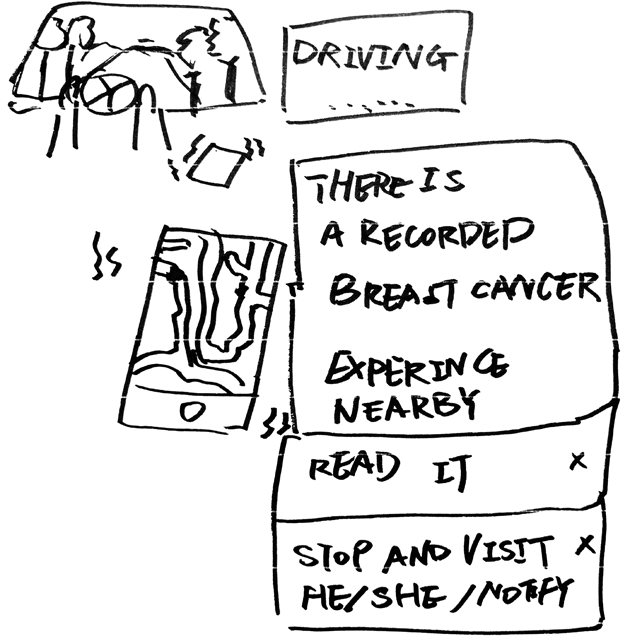 DRIVING
THERE IS
A RECORDED
BREAST CANCER
EXPERINCE
NEARBY
READ IT X
STOP AND VISIT X
HE/SHE/NOTIFY